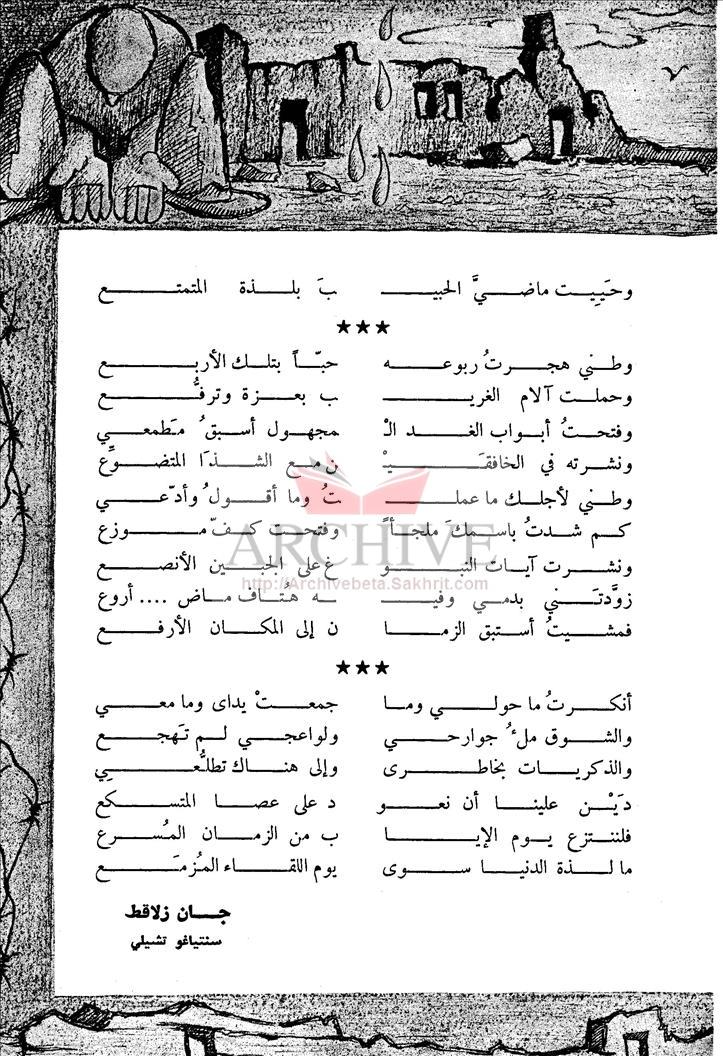 وحَيِيت ماضيَّ الحبيـ ـبَ بلذة المتمتع
★★★
وطني هجرتُ ربوعه حبّاً بتلك الأربع
وحملت آلام الغريـ ـب بعزة وترفُّع
وفتحتُ أبواب الغد الـْ ـمجهول أسبقُ مَطمعي
ونشرته في الخافقَيـْ ـن مع الشذا المتضوِّع
وطني لأجلك ما عملـ ـتُ وما أقولُ وأدّعي
كم شدتُ باسمكَ ملجأً وفتحت كفّ موزع
ونشرت آيات النبو غ على الجبين الأنصع
زوَّدتَني بدمي وفيـ ـه هُتاف ماض .... أروع
فمشيتُ أستبق الزما ن إلى المكان الأرفع
★★★
أنكرتُ ما حولي وما جمعتْ يداى وما معي
والشوق ملءُ جوارحي ولواعجي لم تَهجع
والذكريات بخاطرى وإلى هناك تطلُّعي
دَيْن علينا أن نعو د على عصا المتسكع
فلننتزع يوم الإيا ب من الزمان المُسرع
ما لذة الدنيا سوى يوم اللقاء المُزمَع
جان زلاقط
سنتياغو تشيلي
ARCHIVE
http://Archivebeta.Sakhrit.com